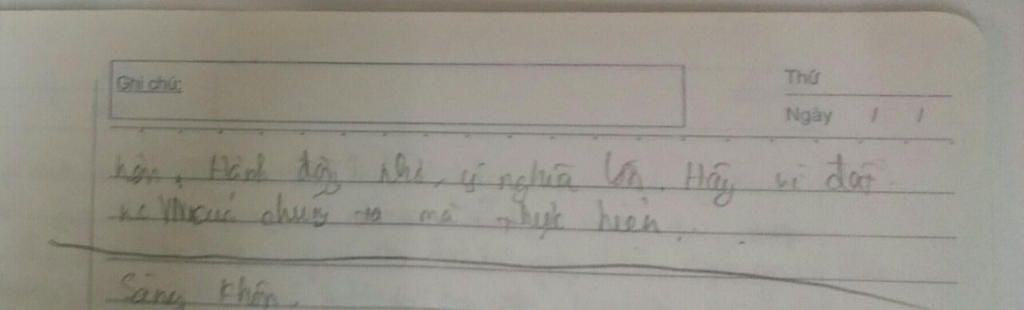 Ghi chú:
Thứ
Ngày / /
hơn. Hành động nhỏ, ý nghĩa lớn. Hãy vì đất
nước chúng ta mà thực hiện.
Sáng khôn.